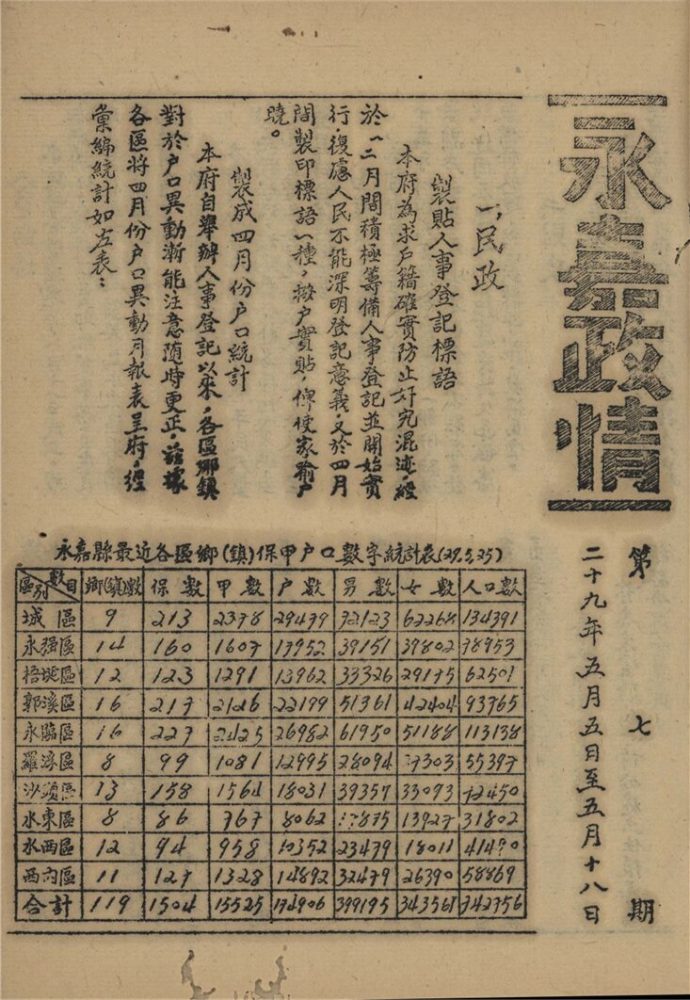 永嘉政情
第七期
二十九年五月五日至五月十八日
一、民政
製貼人事登記標語
本府為求戶籍確實防止奸宄混迹，經
於一二月間積極籌備人事登記並開始實
行，復慮人民不能深明登記意義，又於四月
間製印標語一種，按戶實貼，俾使家喻戶
曉。
製成四月份戶口統計
本府自舉辦人事登記以來，各區鄉鎮
對於戶口異動漸能注意隨時更正，茲據
各區將四月份戶口異動月報表呈府，經
彙編統計如左表：
永嘉縣最近各區鄉(鎮)保甲戶口數字統計表(29.5.25)
區別 數目 鄉(鎮)數 保數 甲數 戶數 男數 女數 人口數
城區 9 213 2378 29479 72123 62268 134391
永强區 14 160 1607 17952 39151 39802 78953
梧埏區 12 123 1291 13962 33326 29175 62501
郭溪區 16 217 2126 22199 51361 42404 93765
永臨區 16 227 2425 26982 61950 51188 113138
羅浮區 8 99 1081 12995 28094 27303 55397
沙頭區 13 158 1564 18031 39357 33093 72450
水東區 8 86 767 8062 17875 13927 31802
水西區 12 94 958 10352 23479 18011 41490
西内區 11 127 1328 14892 32479 26390 58869
合計 119 1504 15525 174906 399195 343561 742756